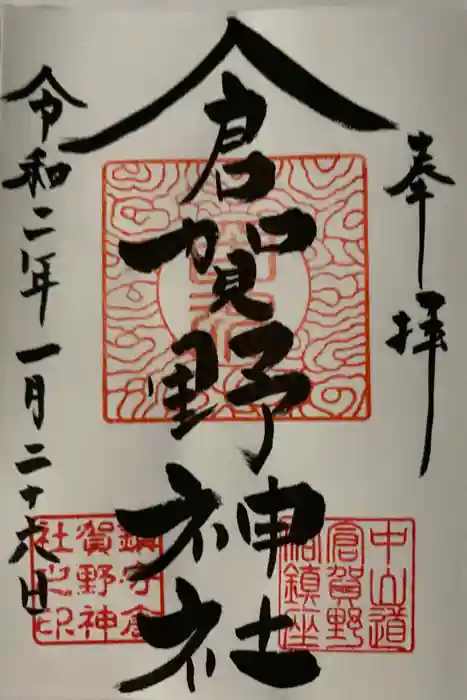 奉拝
倉賀野神社
令和二年一月二十六日
中山道
倉賀野
宿鎮座
鎮守倉
賀野神
社之印